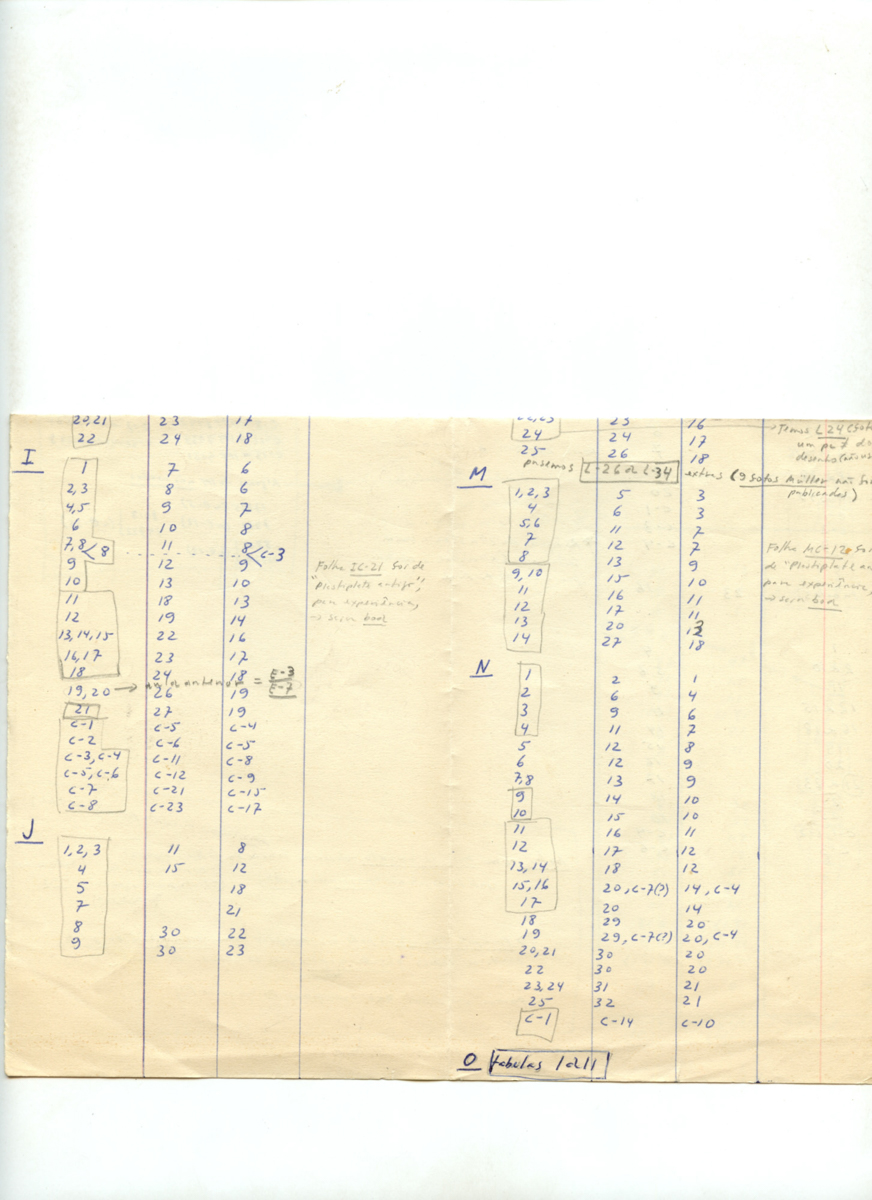 20,21 23 17
22 24 18
I
1 7 6
2,3 8 6
4,5 9 7
6 10 8
7,8 < 8 11 8 < C-3
9 12 9
10 13 10
11 18 13
12 19 14
13,14,15 22 16
16,17 23 17
18 24 18
19,20 → 26 19 = C-3
C-7
21 27 19
C-1 C-5 C-4
C-2 C-6 C-5
C-3, C-4 C-11 C-8
C-5, C-6 C-12 C-9
C-7 C-21 C-15
C-8 C-23 C-17
Folha IC-21 foi de
"Plastiplate antigo",
para experiência,
→ seria boa
J
1,2,3 11 8
4 15 12
5 18
7 21
8 30 22
9 30 23
22,23 23 16
24 24 17
25 26 18
→ Temos L 24 (foto
desenho
pusemos L-26 a L-34 extras (9 fotos Müller não
publicadas)
M
1,2,3 5 3
4 6 3
5,6 11 7
7 12 7
8 13 9
9,10 15 10
11 16 11
12 17 11
13 20 13
14 27 18
Folha MC-12 foi
de "Plastiplate an
para experiência,
→ seria boa
N
1 2 1
2 6 4
3 9 6
4 11 7
5 12 8
6 12 9
7,8 13 9
9 14 10
10 15 10
11 16 11
12 17 12
13,14 18 12
15,16 20, C-7(?) 14, C-4
17 20 14
18 29 20
19 29, C-7(?) 20, C-4
20,21 30 20
22 30 20
23,24 31 21
25 32 21
C-1 C-14 C-10
O tabulas 1 a 11